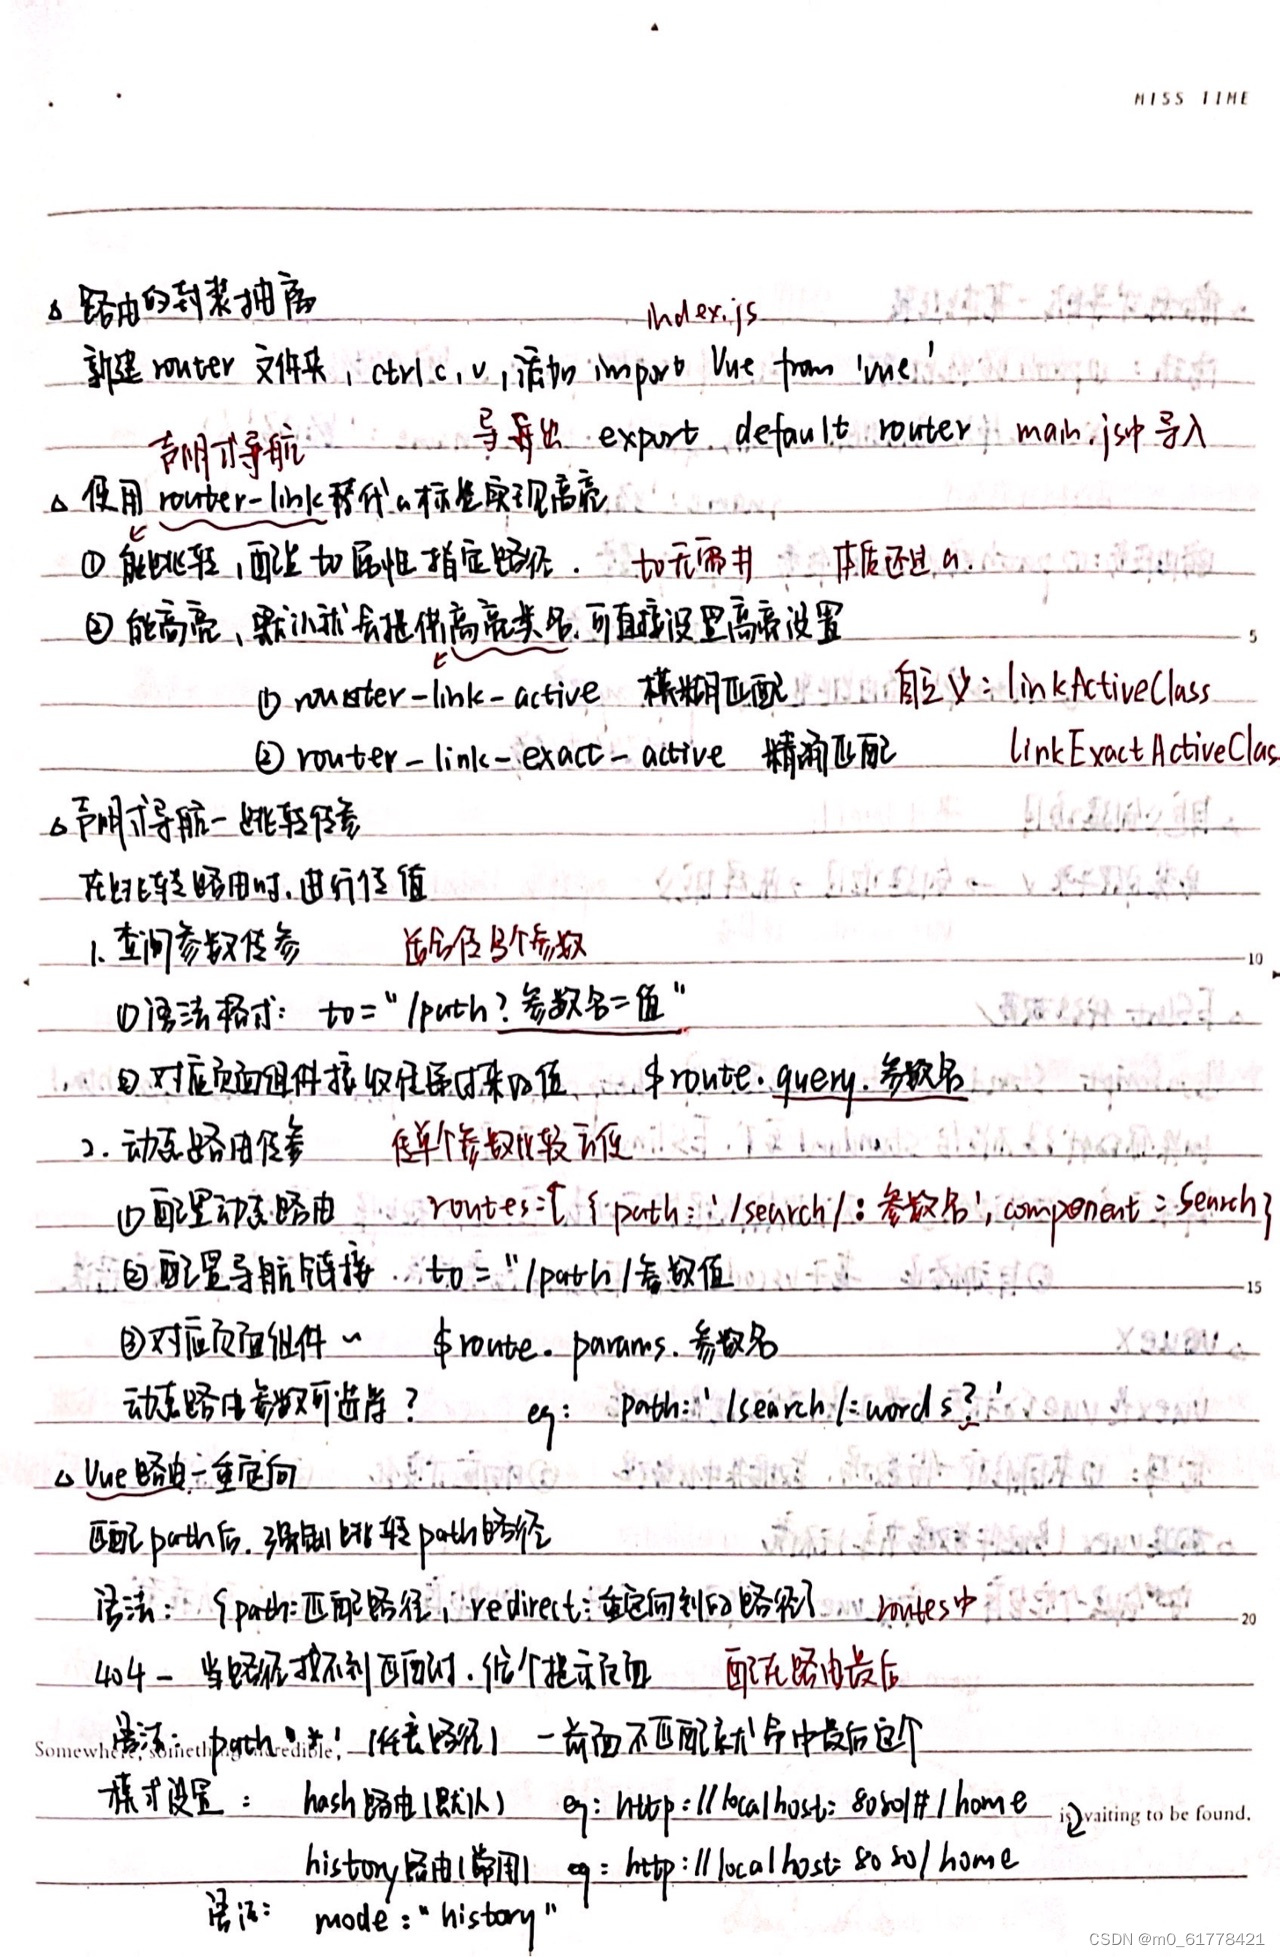 MISS TIME
△ 路由的封装抽离
index.js
新建 router 文件夹, ctrl c, v, 添加 import Vue from 'vue'
导出 export default router main.js中导入
声明式导航
△ 使用 router-link 替代 a 标签实现高亮
① 能跳转, 配置 to 属性指定路径. to无需# 本质还是a.
② 能高亮, 默认就会提供高亮类名, 可直接设置高亮设置
5
① router-link-active 模糊匹配 自定义: linkActiveClass
② router-link-exact-active 精确匹配 linkExactActiveClas
△ 声明式导航—跳转传参
在跳转路由时, 进行传值
1. 查询参数传参 适合传多个参数
10
① 语法格式: to="/path?参数名=值"
② 对应页面组件接收传递过来的值 $route.query.参数名
2. 动态路由传参 传单个参数比较方便
① 配置动态路由 routes:[ { path: '/search/:参数名', component: Search}
② 配置导航链接 to="/path/参数值
15
③ 对应页面组件 ~ $route.params.参数名
动态路由参数可选符? eg: path: '/search/:words?'
△ Vue路由—重定向
匹配path后, 强制跳转path路径
语法: {path:匹配路径, redirect:重定向到的路径} routes中
20
404 — 当路径找不到匹配时, 给个提示页面 配在路由最后
语法: path "*" (任意路径) — 前面不匹配就命中最后这个
Somewhere, something incredible,
模式设置: hash路由(默认) eg: http://localhost:8080/#/home
is waiting to be found.
history路由(常用) eg: http://localhost:8080/home
语法: mode: "history"
CSDN @m0_61778421